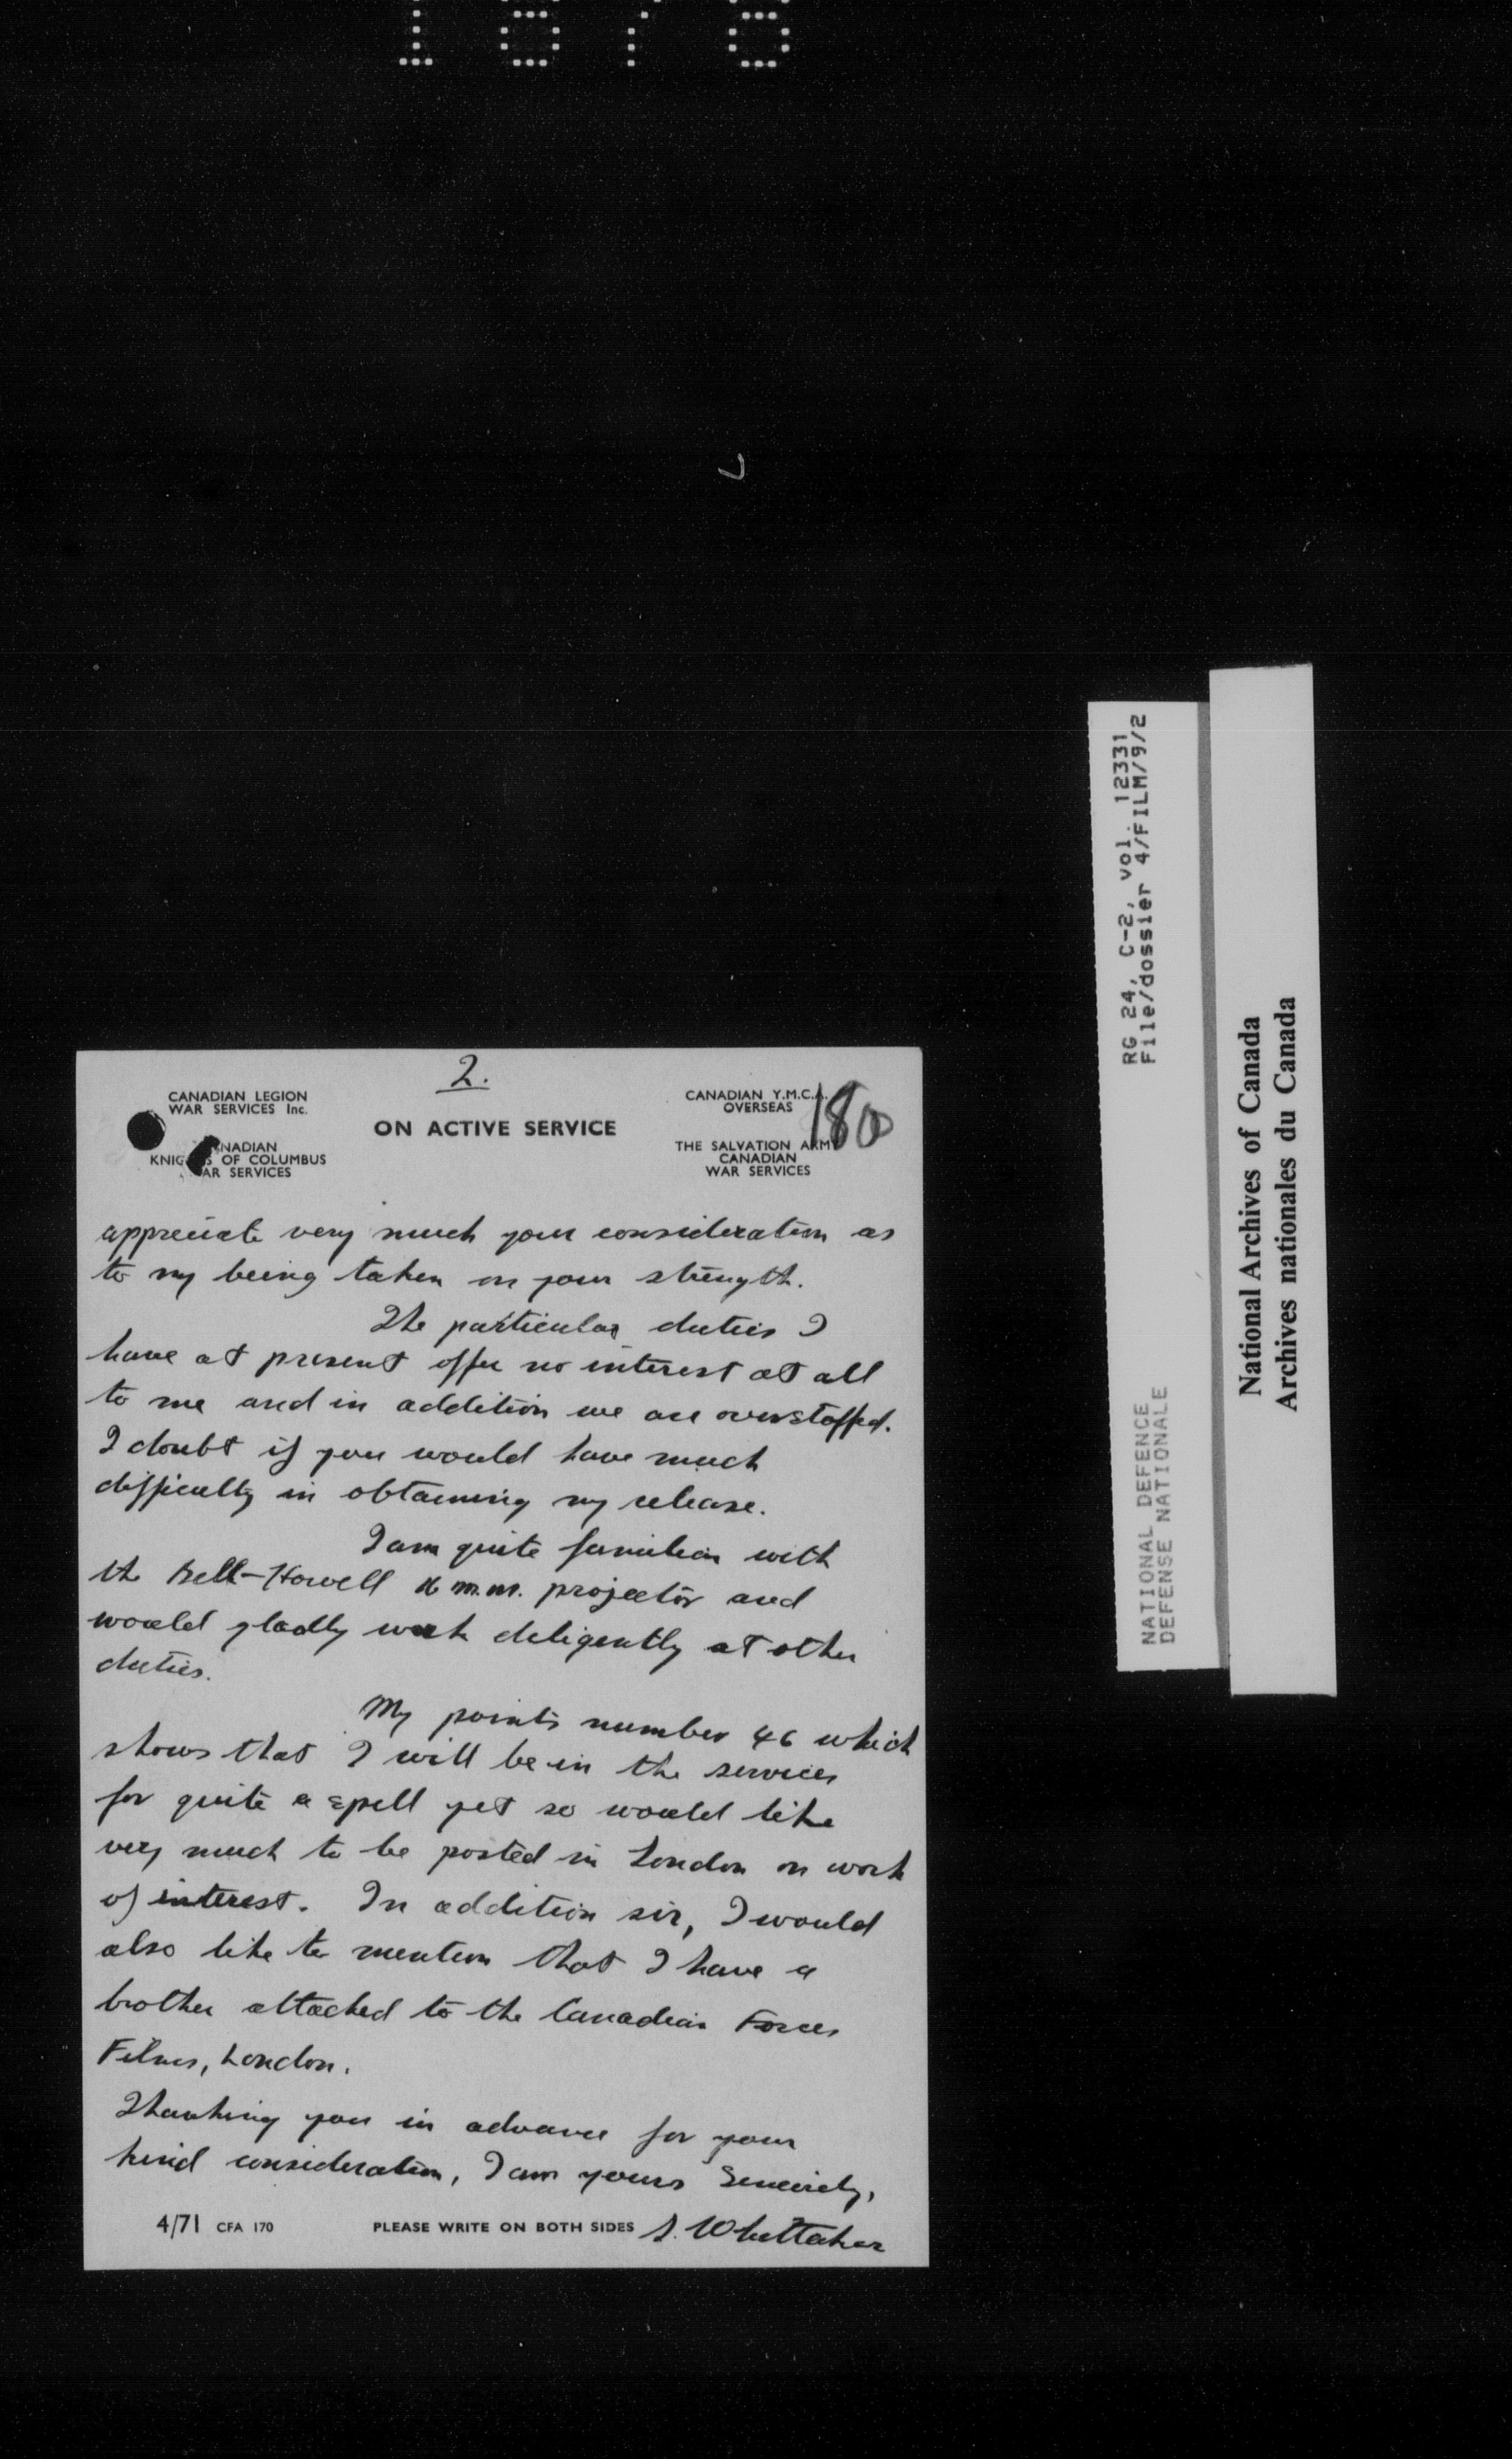 2.
CANADIAN LEGION
WAR SERVICES Inc.
NADIAN
KNIG S OF COLUMBUS
AR SERVICES
ON ACTIVE SERVICE
CANADIAN Y.M.C.A.
OVERSEAS
THE SALVATION ARMY
CANADIAN
WAR SERVICES
180
appreciate very much your consideration as
to my being taken on your strength.
The particular duties I
have at present offer no interest at all
to me and in addition we are overstaffed.
I doubt if you would have much
difficulty in obtaining my release.
I am quite familiar with
the Bell-Howell 16 m.m. projector and
would gladly work deligently at other
duties.
My points number 46 which
shows that I will be in the services
for quite a spell yet so would like
very much to be posted in London on work
of interest. In addition sir, I would
also like to mention that I have a
brother attached to the Canadian Forces
Films, London.
Thanking you in advance for your
kind consideration, I am yours Sincerely,
4/71 CFA 170
PLEASE WRITE ON BOTH SIDES
Whittaker
RG 24, C-2, vol. 12331
File/dossier 4/FILM/9/2
NATIONAL DEFENCE
DEFENSE NATIONALE
National Archives of Canada
Archives nationales du Canada